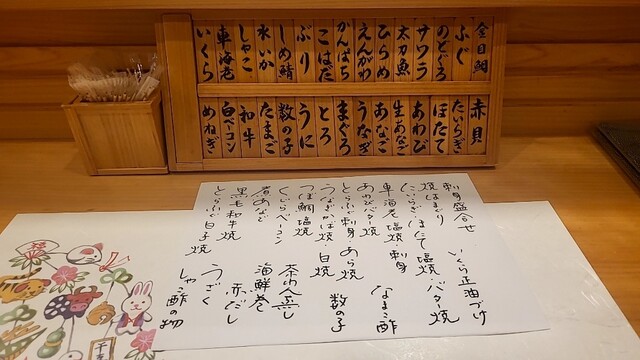 金目鯛
ふぐ
のどぐろ
サワラ
太刀魚
ひらめ
えんがわ
かんぱち
こはだ
ぶり
しめ鯖
水いか
しゃこ
車海老
いくら
赤貝
たいらぎ
ほたて
あわび
生あなご
あなご
うなぎ
まぐろ
とろ
うに
数の子
たまご
和牛
白ベーコン
めねぎ
刺身盛合せ いくら正油づけ
焼はまぐり
たいらぎ ほたて 塩焼 バター焼
車海老 塩焼 刺身
あわびバター焼 なまこ酢
とらふぐ刺身 あら焼
うなぎかば焼 白焼 数の子
つぼ鯛塩焼
くじらベーコン 茶わんむし
煮あなご 海鮮巻
黒毛和牛焼 赤だし
とらふぐ白子焼 うざく
しゃこ酢の物